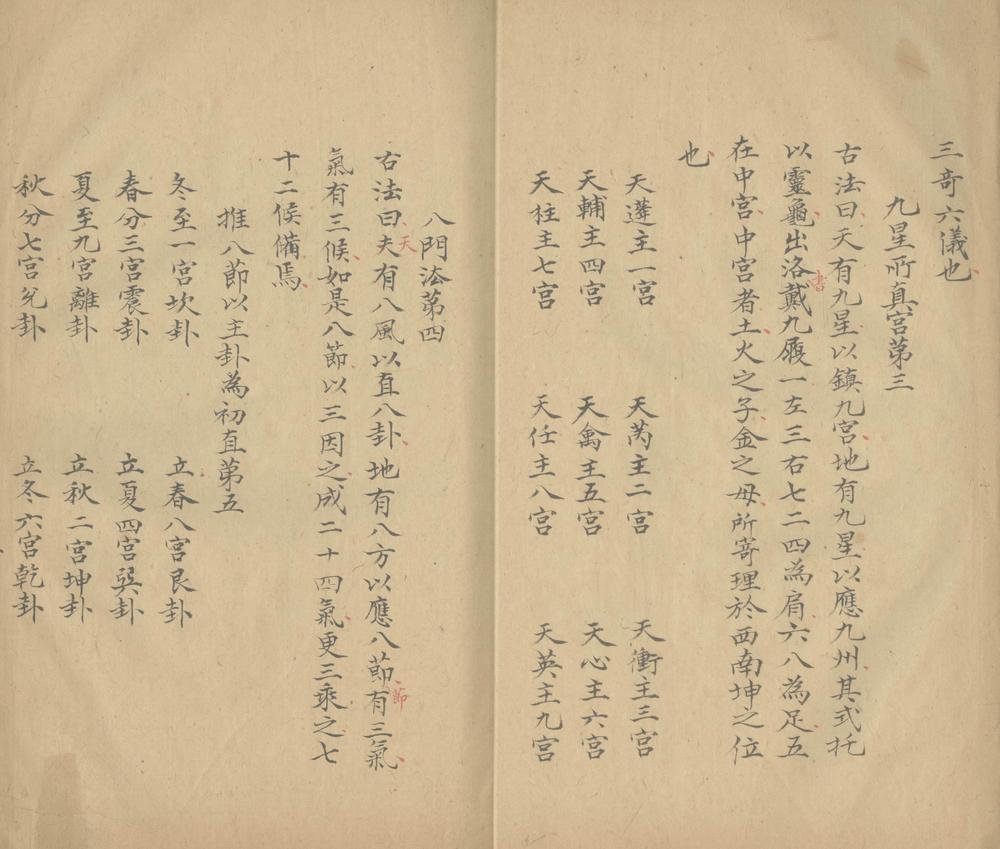 三奇六儀也
九星所真宮第三
古法曰天有九星以鎮九宮地有九星以應九州其式托
以靈龜出洛書戴九履一左三右七二四為肩六八為足五
在中宮中宮者土火之子金之母所寄理於西南坤之位
也
天蓬主一宮 天芮主二宮 天衝主三宮
天輔主四宮 天禽主五宮 天心主六宮
天柱主七宮 天任主八宮 天英主九宮
八門法第四
古法曰天夫有八風以直八卦地有八方以應八節節有三氣
氣有三候如是八節以三因之成二十四氣更三乘之七
十二候備焉
推八節以主卦為初直第五
冬至一宮坎卦 立春八宮艮卦
春分三宮震卦 立夏四宮巽卦
夏至九宮離卦 立秋二宮坤卦
秋分七宮兌卦 立冬六宮乾卦